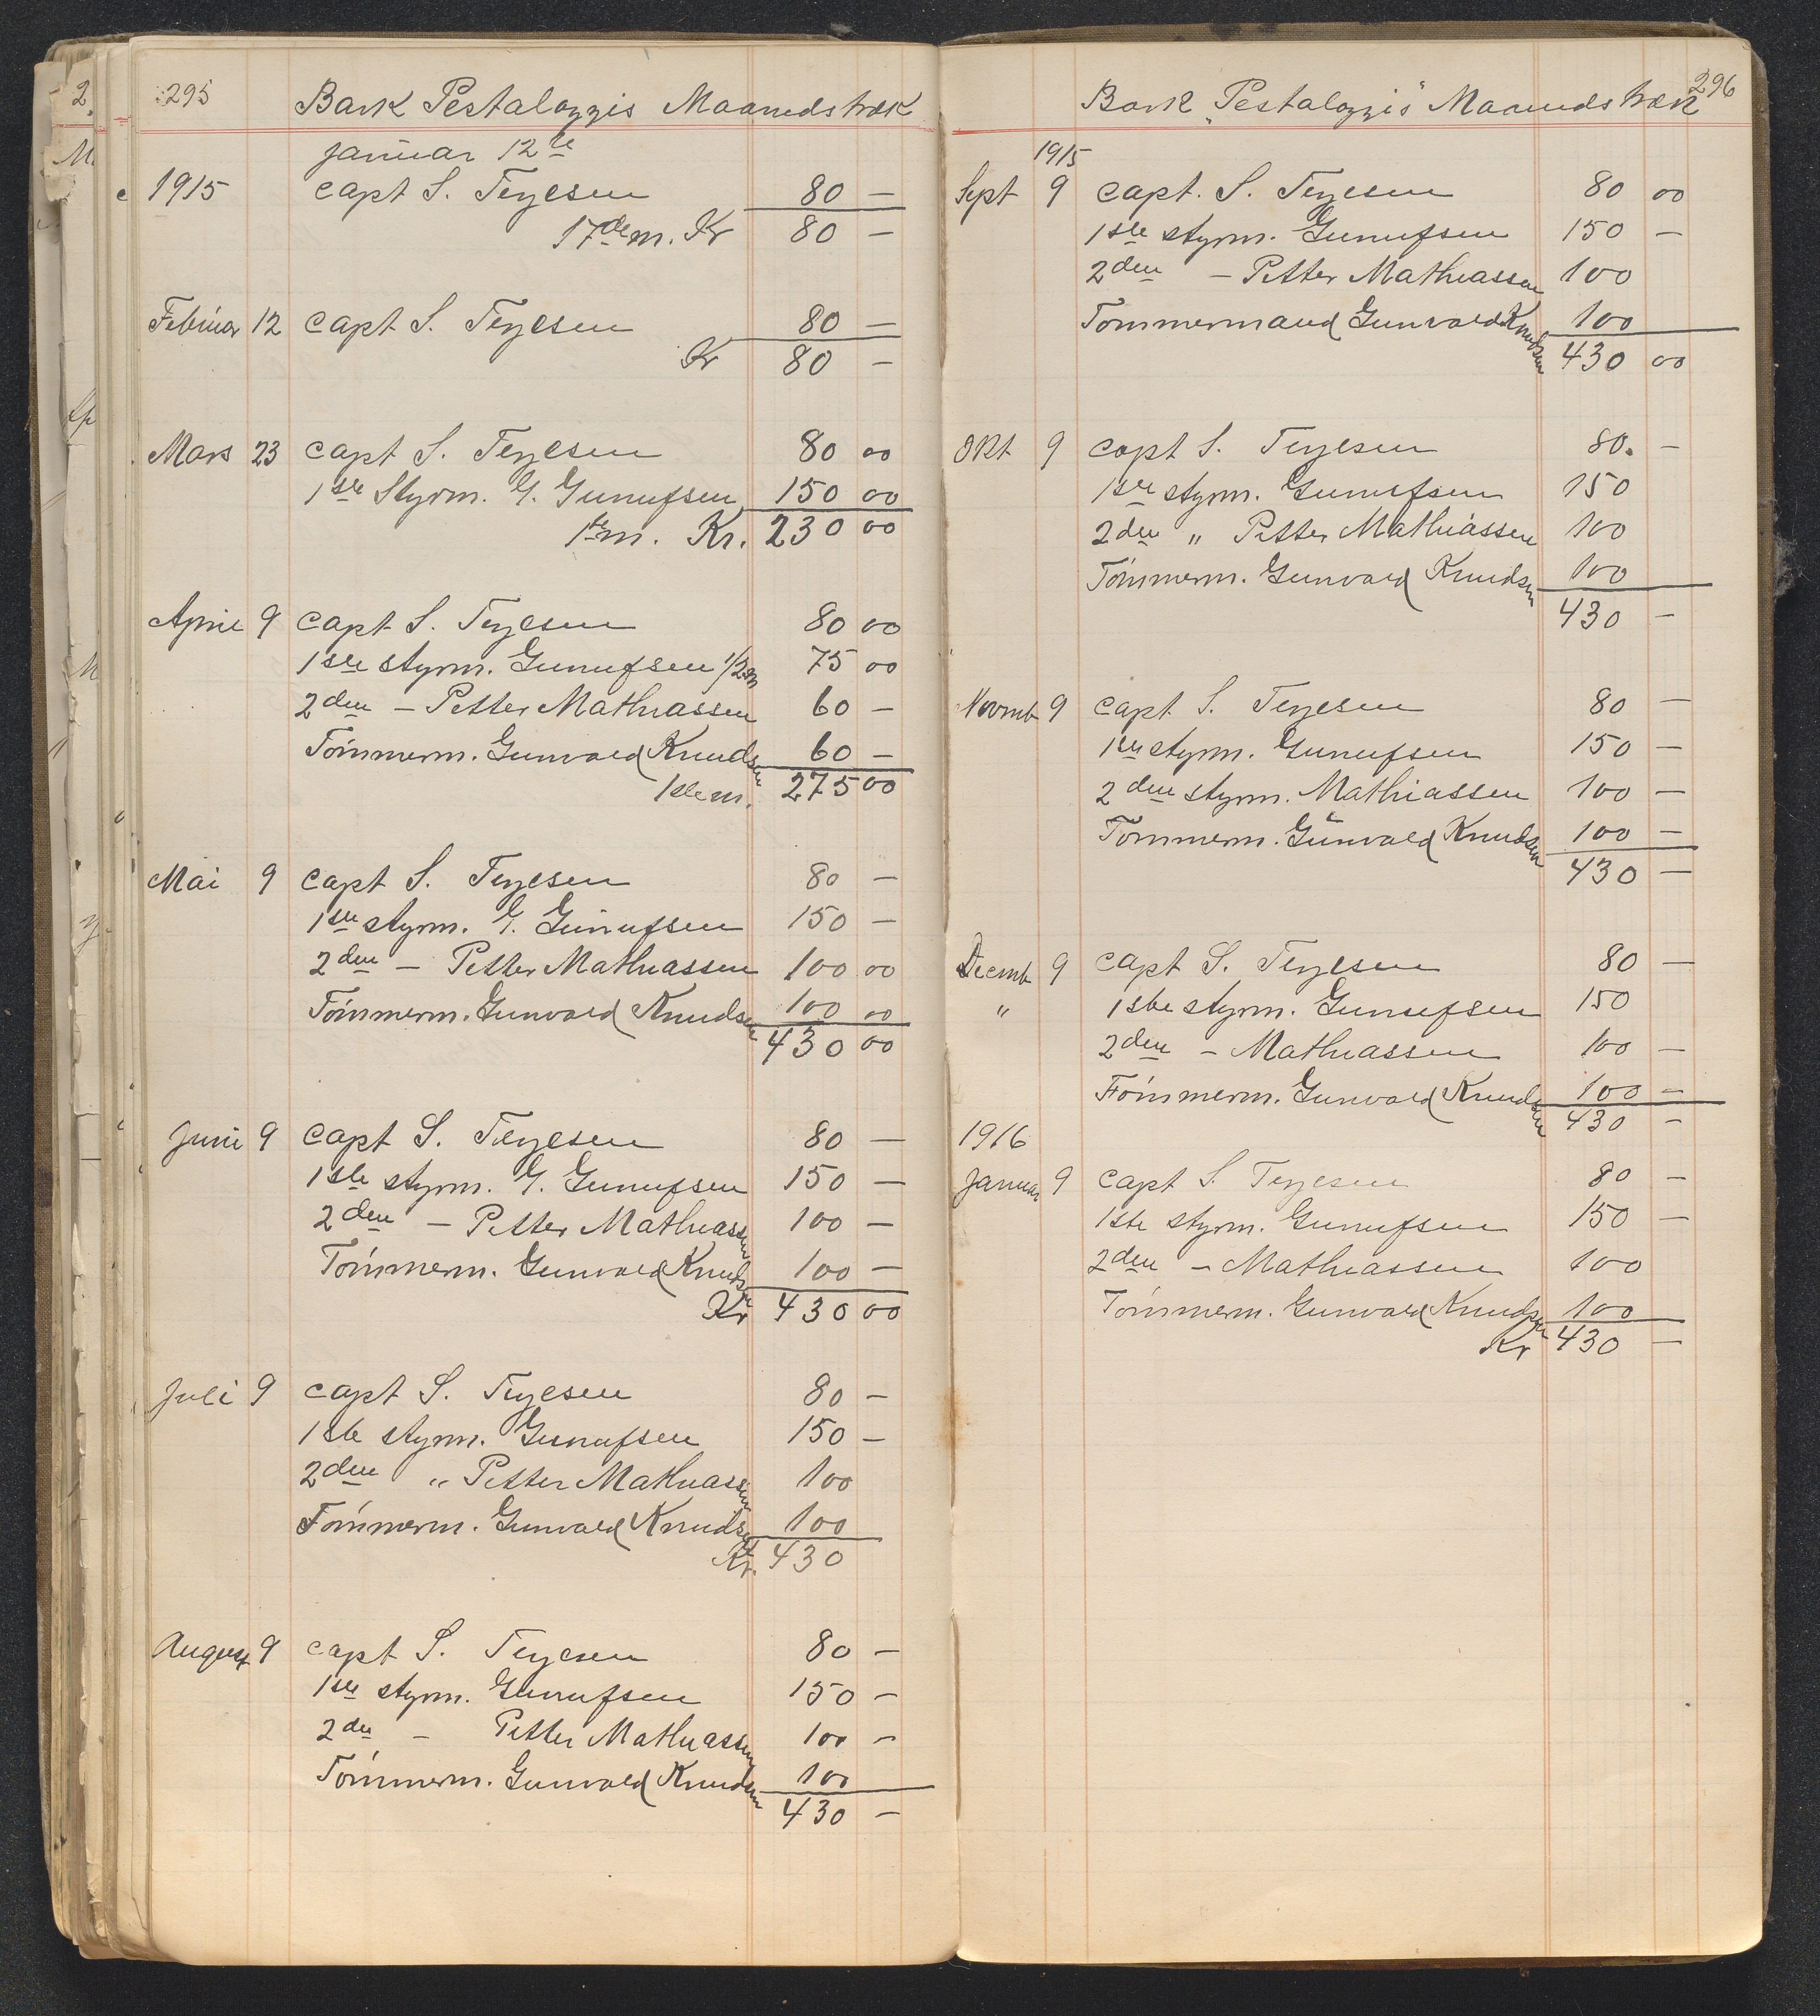 295
Bark Pestalozzis Maanedstræk
Januar 12te
1915 Capt S. Terjesen 80 —
17de m. Kr 80 —
Februar 12 Capt S. Terjesen 80 —
Kr 80 —
Mars 23 Capt S. Terjesen 80 00
1ste Styrm. G. Gunufsen 150 00
1ste m. Kr. 230 00
April 9 Capt S. Terjesen 80 00
1ste styrm. Gunufsen 1/2 m 75 00
2den — Petter Mathiassen 60 —
Tömmerm. Gunvald Knudsen 60 —
1ste m. 275 00
Mai 9 Capt S. Terjesen 80 —
1ste styrm. G. Gunufsen 150 —
2den — Petter Mathiassen 100 00
Tömmerm. Gunvald Knudsen 100 00
430 00
Juni 9 Capt S. Terjesen 80 —
1ste styrm. G. Gunufsen 150 —
2den — Petter Mathiassen 100 —
Tömmerm. Gunvald Knudsen 100 —
Kr 430 00
Juli 9 Capt S. Terjesen 80 —
1ste styrm. Gunufsen 150 —
2den " Petter Mathiassen 100
Tömmerm. Gunvald Knudsen 100
Kr. 430
August 9 Capt S. Terjesen 80 —
1ste styrm. Gunufsen 150 —
2den — Petter Mathiassen 100 —
Tömmerm. Gunvald Knudsen 100
430 —
296
Bark „Pestalozzis" Maanedstræk
1915
Sept 9 Capt. S. Terjesen 80 00
1ste styrm. Gunufsen 150 —
2den — Petter Mathiassen 100
Tömmermand Gunvald Knudsen 100
430 00
Okt 9 Capt S. Terjesen 80. —
1ste styrm. Gunufsen 150
2den " Petter Mathiassen 100
Tömmerm. Gunvald Knudsen 100
430 —
Novmb 9 Capt S. Terjesen 80 —
1ste styrm. Gunufsen 150 —
2den styrm. Mathiassen 100 —
Tömmerm. Gunvald Knudsen 100 —
430 —
Decmb 9 Capt S. Terjesen 80 —
" 1ste styrm. Gunufsen 150
2den — Mathiassen 100 —
Tömmerm. Gunvald Knudsen 100 —
430 —
1916
Januar 9 Capt S. Terjesen 80 —
1ste styrm. Gunufsen 150 —
2den — Mathiassen 100
Tömmerm. Gunvald Knudsen 100
Kr 430 —